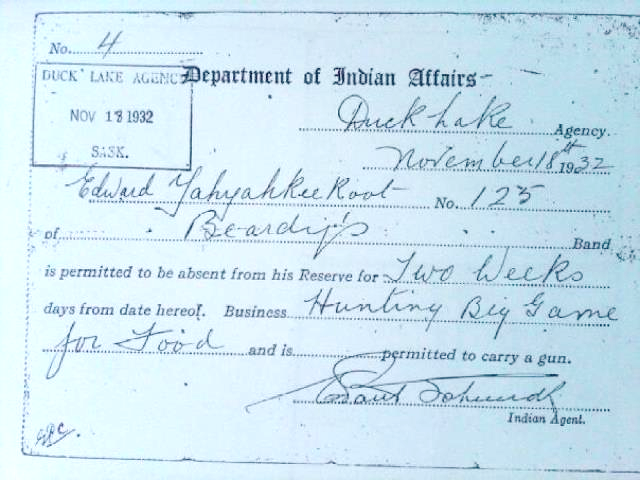 No. 4
DUCK LAKE AGENCY
NOV 18 1932
SASK.
Department of Indian Affairs
Duck Lake Agency.
November 18th 1932
Edward Yahyahkeekoot No. 125
of Beardy's Band
is permitted to be absent from his Reserve for Two Weeks
days from date hereof. Business Hunting Big Game
for Food and is permitted to carry a gun.
Indian Agent.